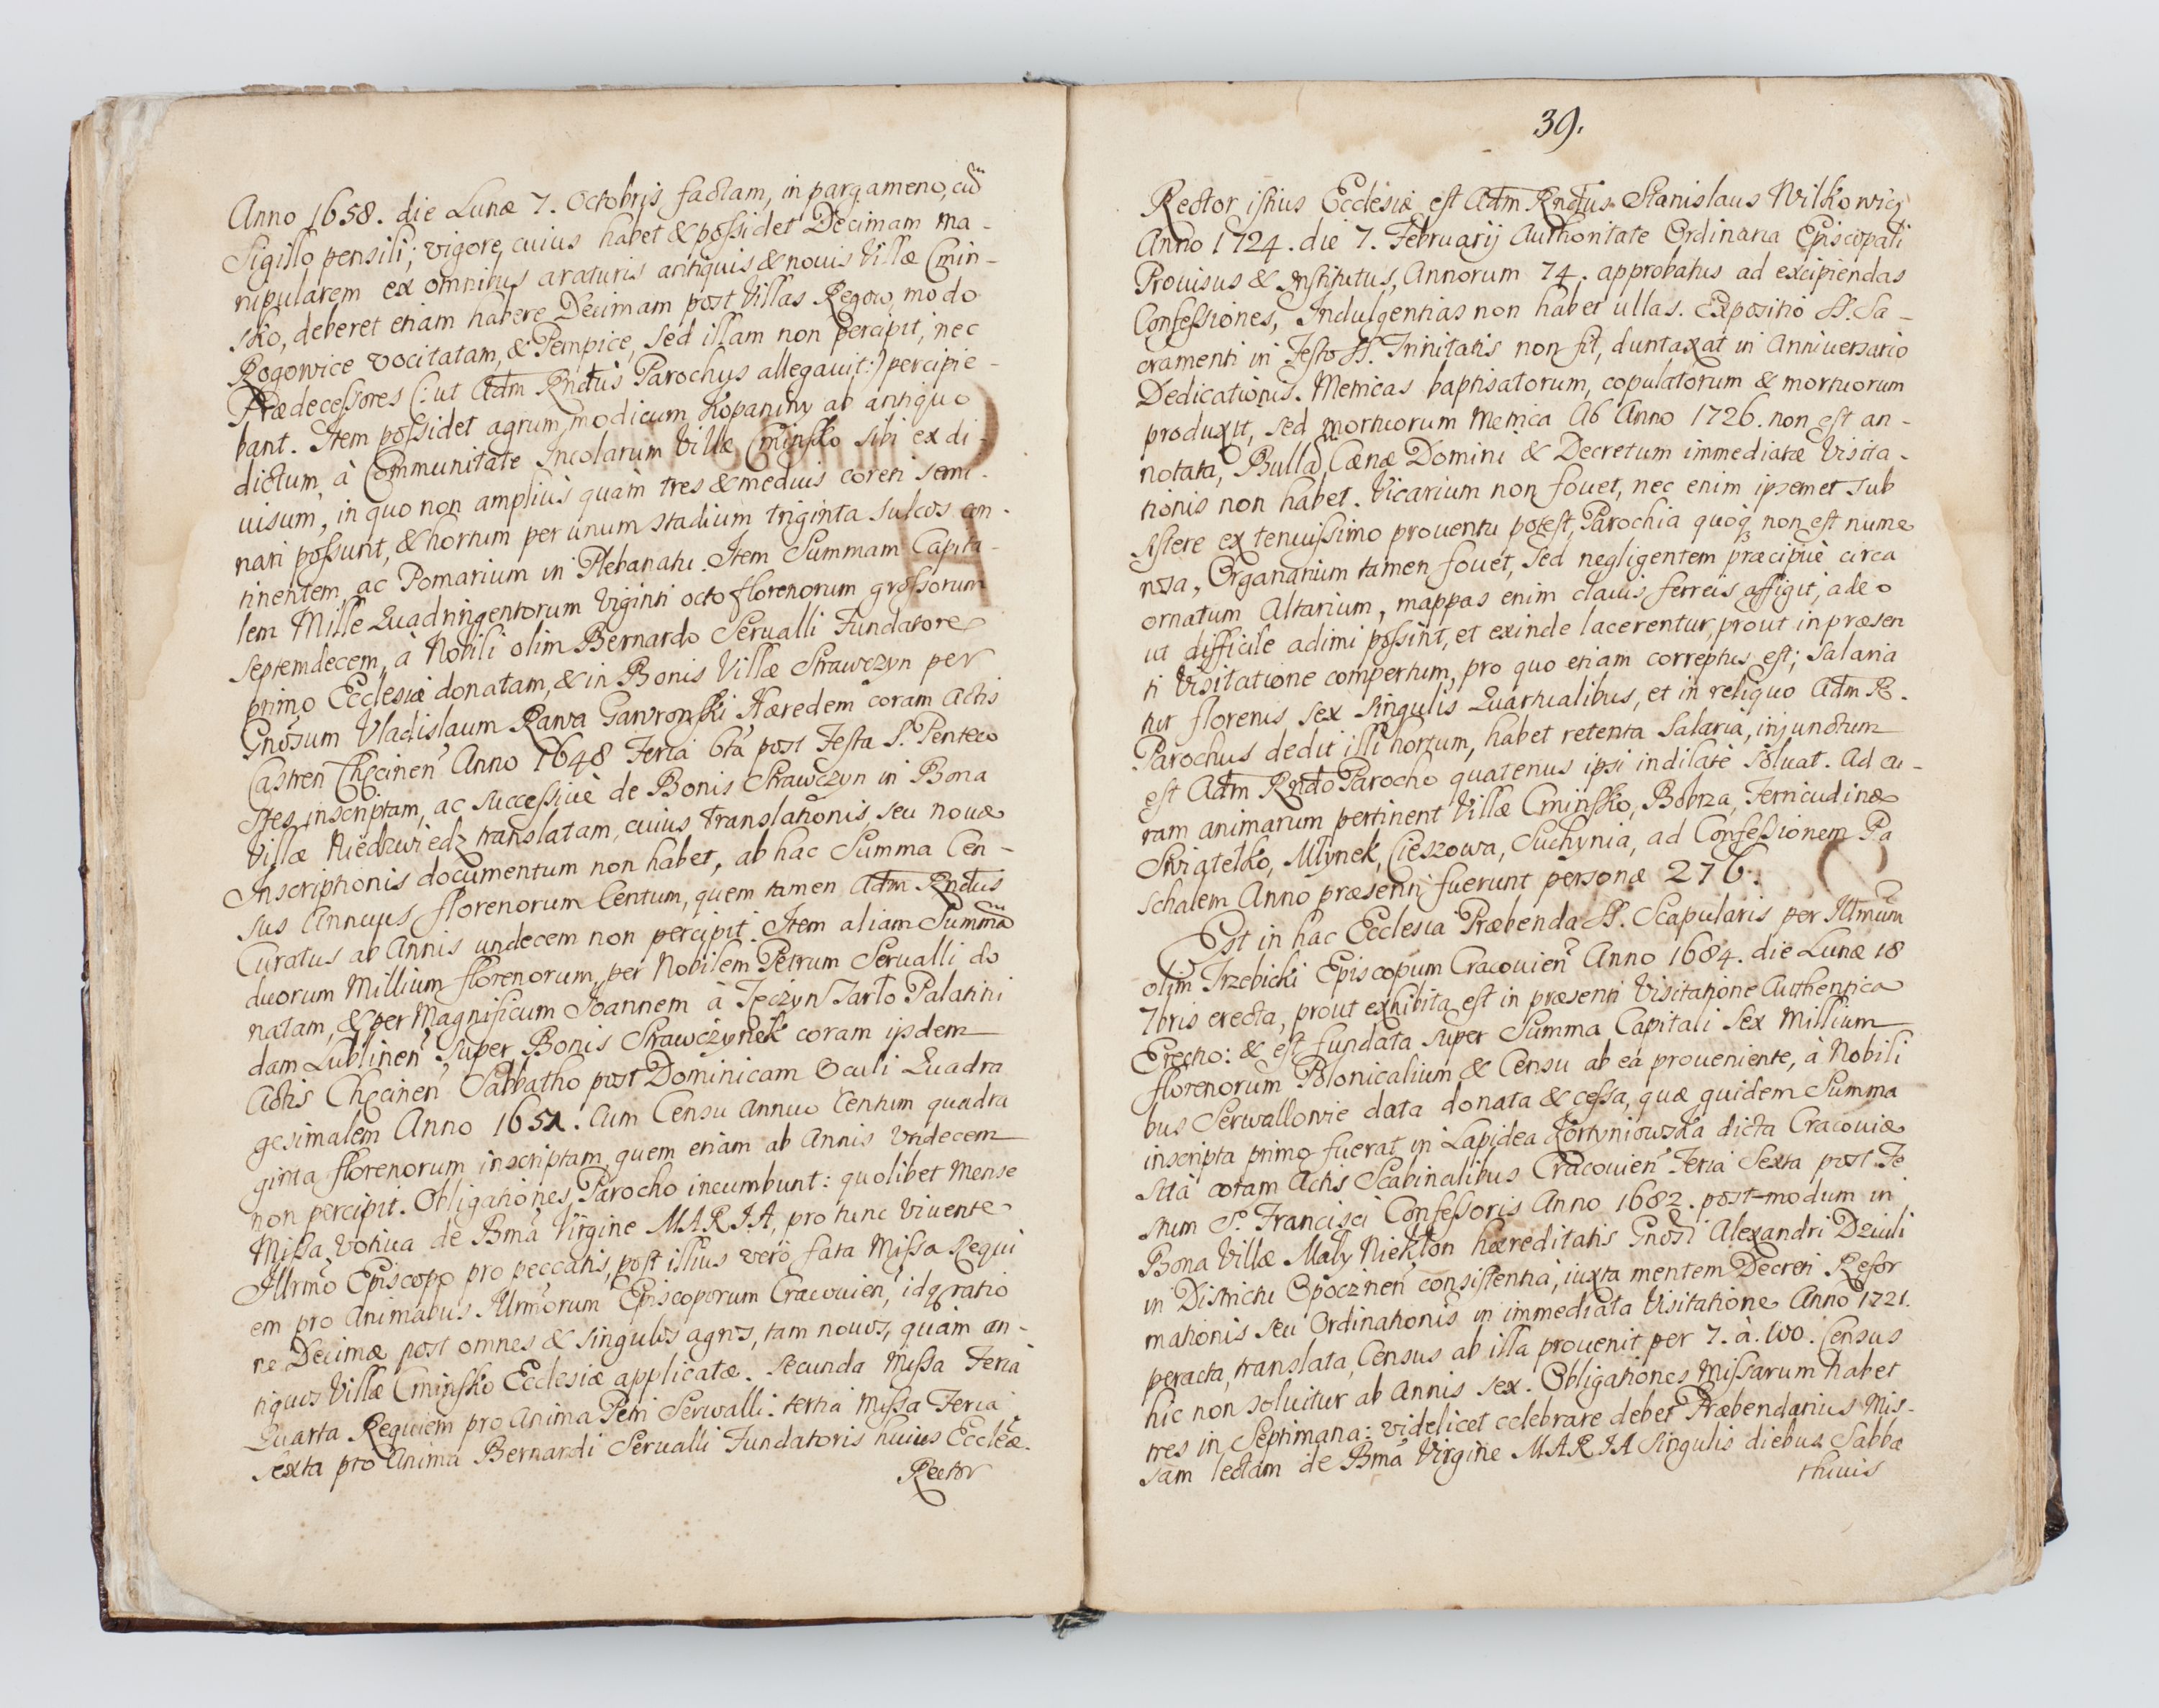 Anno 1658. die Lunæ 7. Octobris factam, in pargameno, cũ
Sigillo pensili; vigore cuius habet & possidet Decimam ma-
nipularem ex omnibus araturis antiquis & nouis Villæ Cmin-
sko, deberet etiam habere Decimam post Villas Regow, modo
Rogowice vocitatam, & Pempice, sed illam non percipit, nec
Prædecessores (: ut Adm Rndus Parochus allegauit:) percipie-
bant. Item possidet agrum modicum Kopaniny ab antiquo
dictum, à Communitate Incolarum Villæ Cminsko sibi ex di-
uisum, in quo non amplius quàm tres & medius coreti semi-
nari possunt, & hortum per unum stadium triginta sulcos con-
tinentem, ac Pomarium in Plebanatu. Item Summam Capita-
lem Mille Quadringentorum Viginti octo florenorum grossorum
septemdecem, à Nobili olim Bernardo Serualli Fundatore
primo Ecclesiæ donatam, & in Bonis Villæ Strawczyn per
Gnosum Vladislaum Rawa Gawronski Hæredem coram Actis
Castren Checinen Anno 1648 Feria 6ta post Festa S. Penteco
stes inscriptam, ac successiuè de Bonis Strawczyn in Bona
Villæ Niedzwiedz translatam, cuius translationis, seu nouæ
Inscriptionis documentum non habet, ab hac Summa Cen-
sus Annuus florenorum Centum, quem tamen Adm Rndus
Curatus ab Annis undecem non percipit. Item aliam Summã
duorum Millium florenorum, per Nobilem Petrum Serualli do
natam, & per Magnificum Joannem à Tęczyn Tarło Palatini
dam Lublinen super Bonis Strawczynek coram ijsdem
Actis Checinen Sabbatho post Dominicam Oculi Quadra
gesimalem Anno 1651. Cum Censu annuo Centum quadra
ginta florenorum inscriptam, quem etiam ab Annis Vndecem
non percipit. Obligationes Parocho incumbunt: quolibet Mense
Missa Votiua de Bma Virgine MARIA, pro tunc viuente
Illrmo Episcopo pro peccatis, post illius verò fata Missa Requi
em pro Animabus Illrmorum Episcoporum Cracouien, idq ratio
ne Decimæ post omnes & singulos agros, tam nouos, quàm an-
tiquos Villæ Cminsko Ecclesiæ applicatæ. secunda Missa Feria
Quarta Requiem pro Anima Petri Serwalli. tertia Missa Feria
sexta pro Anima Bernardi Serualli Fundatoris huius Eccleæ.
Rector
39.
Rector istius Ecclesiæ est Adm Rndus Stanislaus Wilkowicz
Anno 1724. die 7. Februarij Authoritate Ordinaria Episcopali
Prouisus & Institutus, Annorum 74. approbatus ad excipiendas
Confessiones, Indulgentias non habet ullas. Expositio SS. Sa-
cramenti in Festo SS. Trinitatis non fit, duntaxat in Anniuersario
Dedicationis. Metricas baptisatorum, copulatorum & mortuorum
produxit, sed mortuorum Metrica ab Anno 1726. non est an-
notata, Bullã Cænæ Domini & Decretum immediatæ Visita-
tionis non habet. Vicarium non fouet, nec enim ipsemet sub
sistere ex tenuissimo prouentu potest, Parochia quoq non est nume
rosa, Organarium tamen fouet, sed negligentem præcipuè circa
ornatum Altarium, mappas enim clauis ferreis affigit, adeo
ut difficile adimi possint, et exinde lacerentur, prout in præsen
ti Visitatione compertum, pro quo etiam correptus est; salaria
tur florenis sex singulis Quartualibus, et in reliquo Adm R.
Parochus dedit illi hortum, habet retenta salaria, injunctum
est Adm Rndo Parocho quatenus ipsi indilatè soluat. Ad cu-
ram animarum pertinent Villæ Cminsko, Bobrza, Ferricudinæ
Swiątełko, Młynek, Cieszowa, Suchynia, ad Confessionem Pa
schalem Anno præsenti fuerunt personæ 276.
Est in hac Ecclesia Præbenda SS. Scapularis per Illmum
olim Trzebicki Episcopum Cracouien Anno 1684. die Lunæ 18
7bris erecta, prout exhibita est in præsenti Visitatione Authentica
Erectio: & est fundata super Summa Capitali Sex Millium
florenorum Polonicalium & Censu ab ea proueniente, à Nobili
bus Serwallowie data donata & cessa, quæ quidem Summa
inscripta primo fuerat in Lapidea Fortyniowska dicta Cracouiæ
sita coram Actis Scabinalibus Cracouien Feria Sexta post Fe
stum S. Francisci Confessoris Anno 1682. post-modum in
Bona Villæ Mały Niekłon hæreditatis Gnosi Alexandri Dziuli
in Districtu Opocznen consistentia, iuxta mentem Decreti Refor
mationis seu Ordinationis in immediata Visitatione Anno 1721.
peracta, translata, Census ab illa prouenit per 7. à. 100. Census
hic non soluitur ab Annis sex. Obligationes Missarum habet
tres in Septimana: videlicet celebrare debet Præbendarius Mis-
sam lectam de Bma Virgine MARIA singulis diebus Sabba
thinis